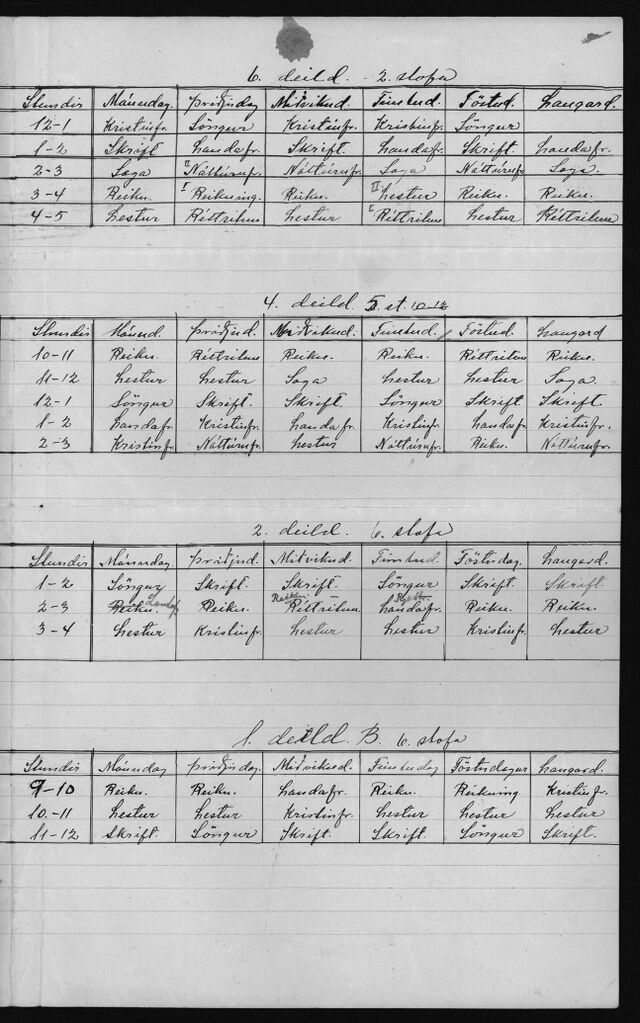 6. deild. - 2. stofa
Stundir Mánudag. Þriðjudag Miðvikud. Fimtud. Föstud. Laugard.
12-1 Kristinfr. Söngur Kristinfr. Kristinfr. Söngur
1-2 Skrift Landafr. Skrift. Landafr. Skrift. Landafr.
2-3 Saga II Náttúruf. Náttúruf. Saga Náttúruf. Saga
3-4 Reikn. I Reikning. Reikn. II Lestur Reikn. Reikn.
4-5 Lestur Réttritun Lestur I Réttritun Lestur Réttritun
4. deild 5. st. 10-12
Stundir Mánud. Þriðjud. Miðvikud. Fimtud. Föstud. Laugard
10-11 Reikn. Réttritun Reikn. Reikn. Réttritun Reikn.
11-12 Lestur Lestur Saga Lestur Lestur Saga
12-1 Söngur Skrift. Skrift. Söngur Skrift. Skrift.
1-2 Landafr. Kristinfr. Landafr. Kristinfr. Landafr. Kristinfr.
2-3 Kristinfr. Náttúruf. Lestur Náttúruf. Reikn. Náttúruf.
2. deild. 6. stofa
Stundir Mánudag. Þriðjud. Miðvikud. Fimtud. Föstudag. Laugard.
1-2 Söngur Skrift. Skrift. Söngur Skrift. Skrift.
2-3 Reikn. Landaf. Reikn. Reikn. Réttritun Landafr. Reikn. Reikn.
3-4 Lestur Kristinfr. Lestur Lestur Kristinfr. Lestur
1. deild. B. 6. stofa
Stundir Mánudag Þriðjudag. Miðvikud. Fimtudag Föstudagur Laugard.
9-10 Reikn. Reikn. Landafr. Reikn. Reikning Kristinfr.
10-11 Lestur Lestur Kristinfr. Lestur Lestur Lestur
11-12 Skrift. Söngur Skrift. Skrift. Söngur Skrift.